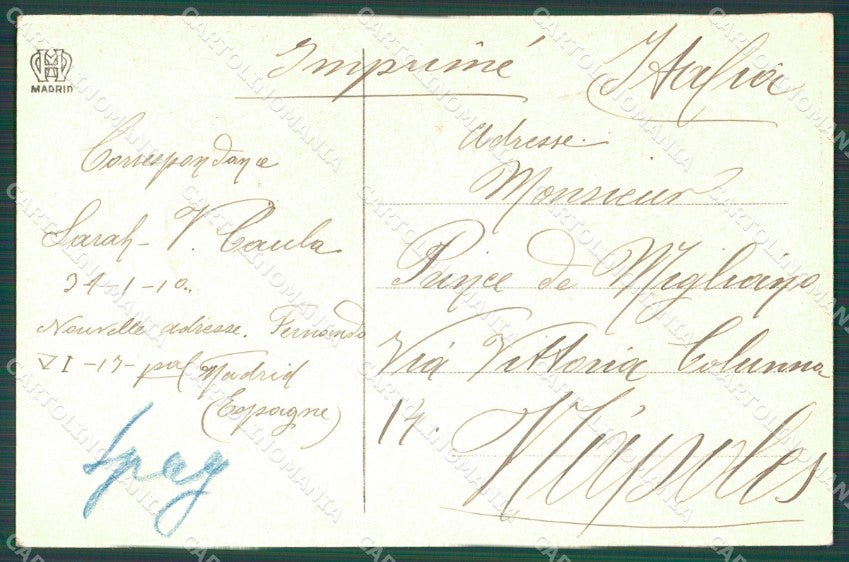 MADRID
Imprimé
Italia
Correspondance
Sarah - V. Caula
24-1-10.
Nouvelle adresse. Fernando
VI-17- pal Madrid
(Espagne)
Spag
Adresse.
Monsieur
Prince de Migliano
Via Vittoria Colonna
14.
Nápoles
CARTOLINOMANIA